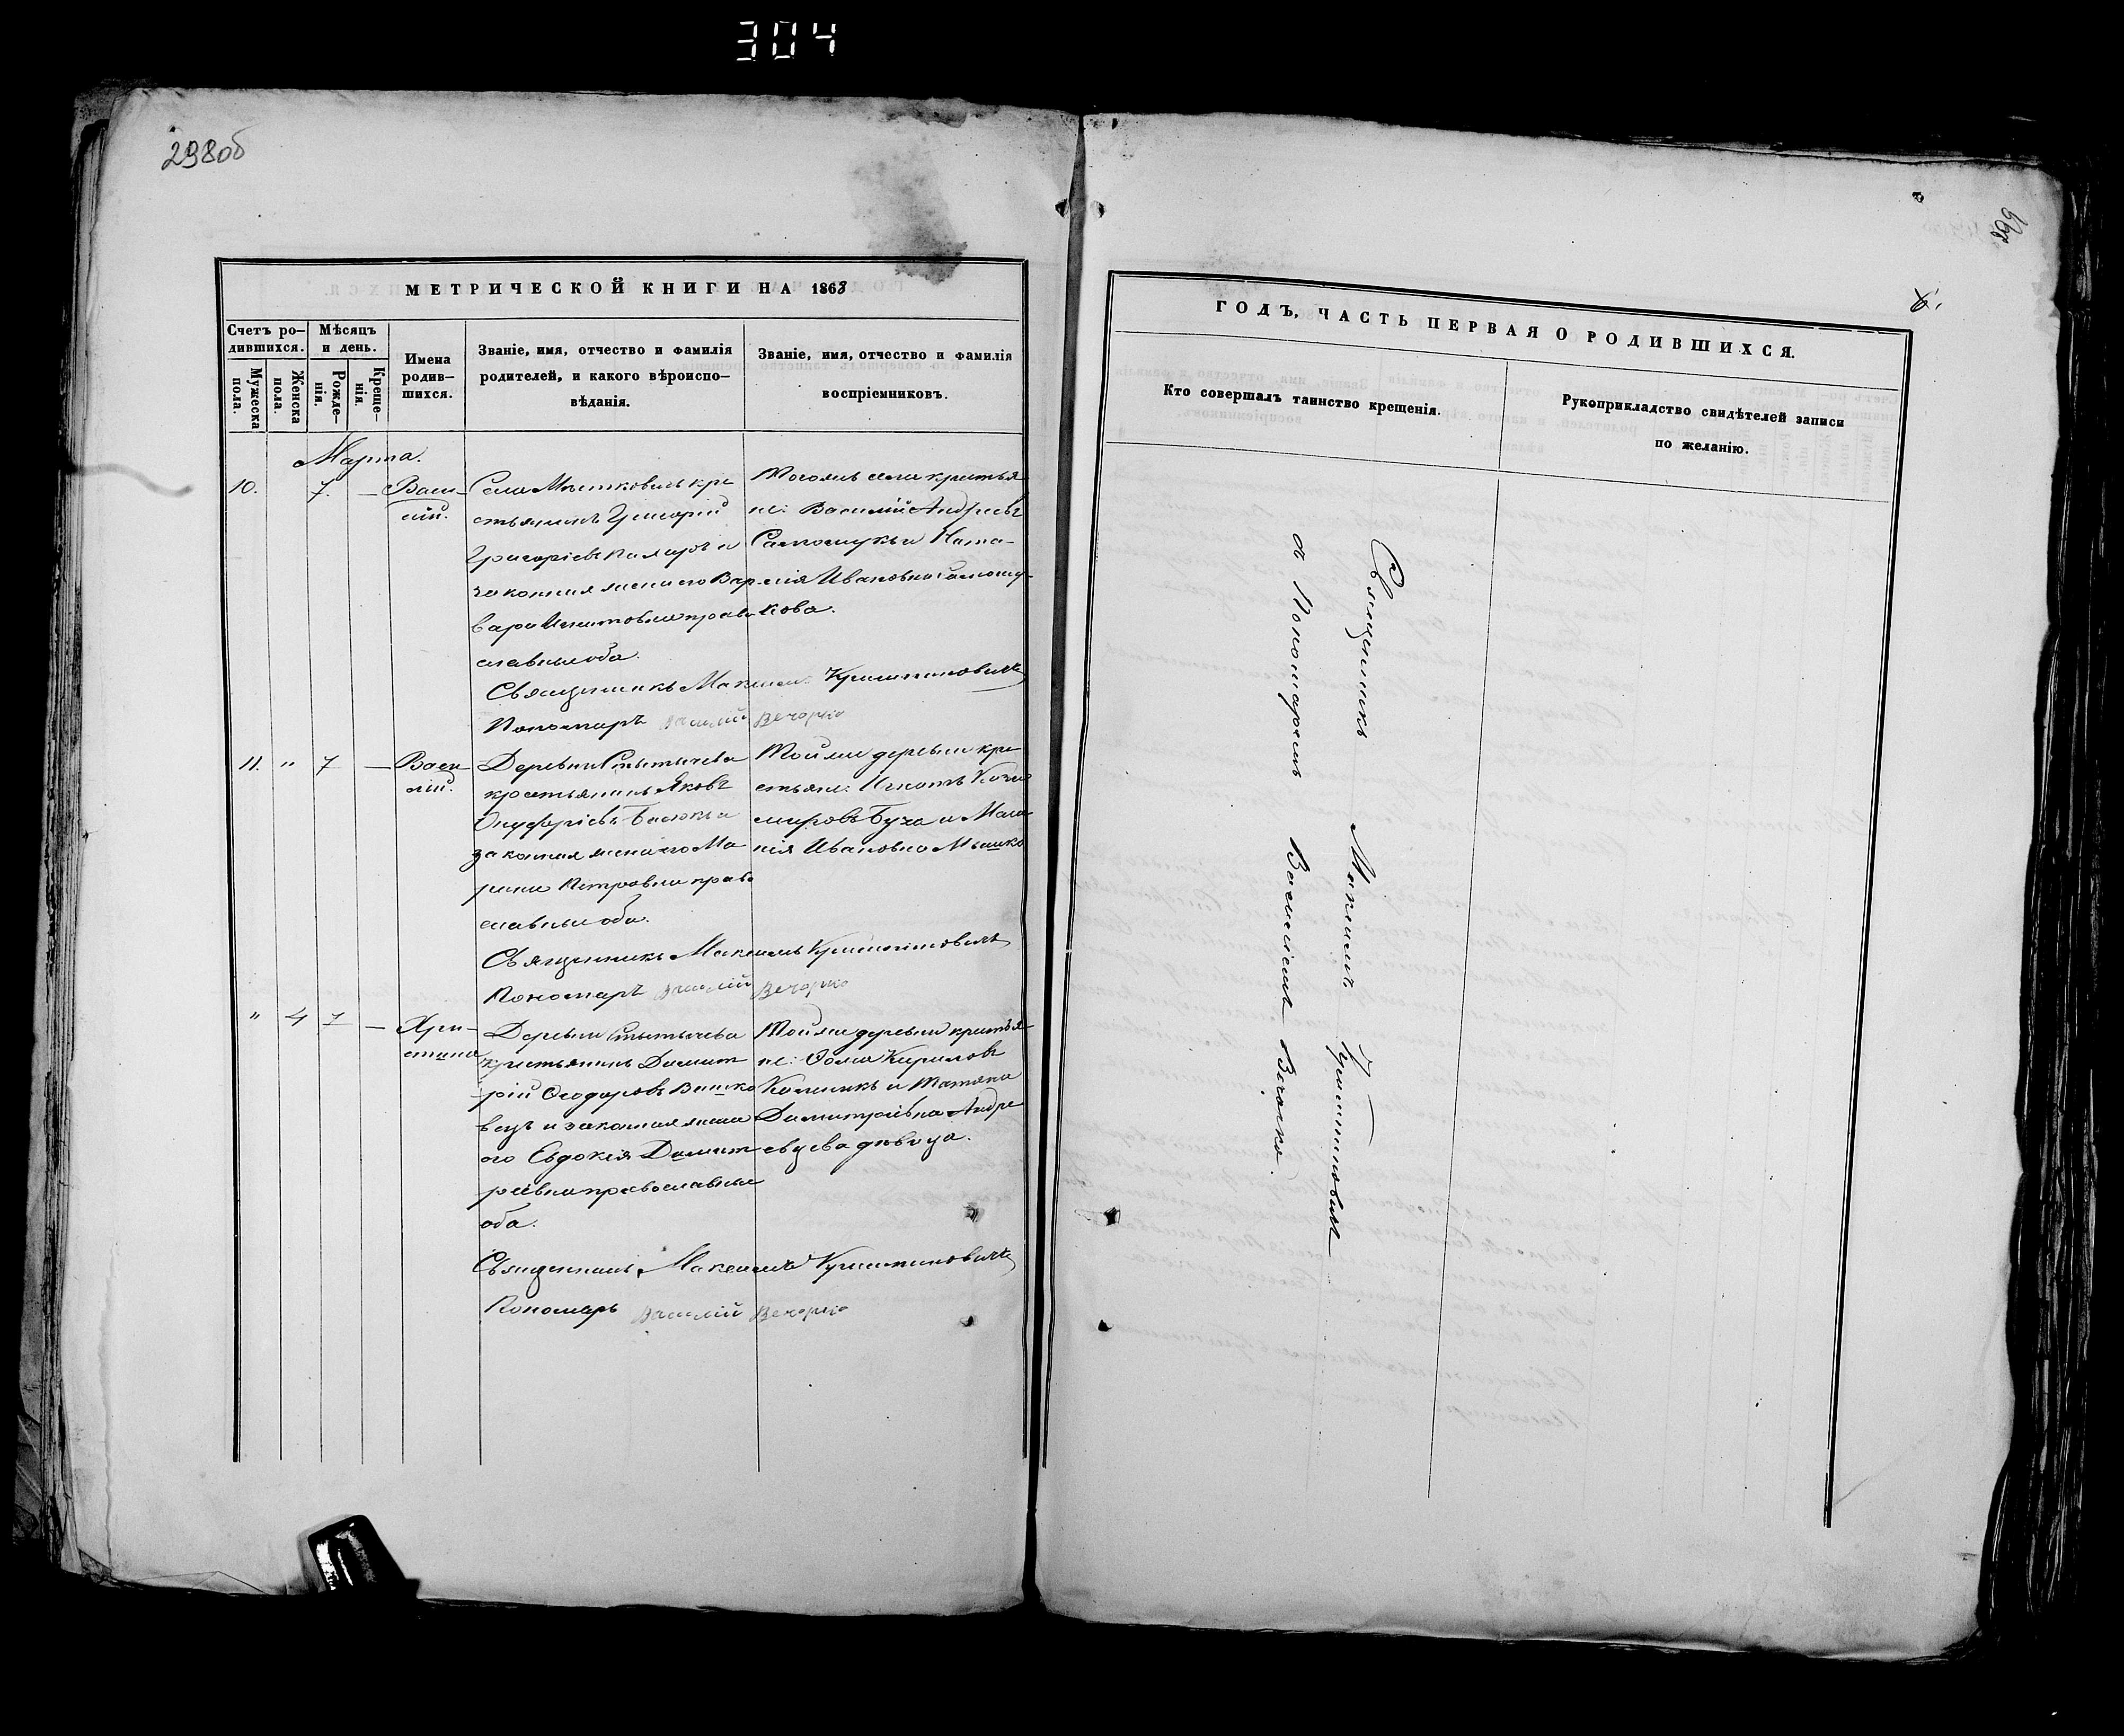 304
298об
МЕТРИЧЕСКОЙ КНИГИ НА 1863
Счетъ ро-
дившихся.
Мужеска
пола.
Женска
пола.
Мѣсяцъ
и день.
Рожде-
нія.
Креще-
нія.
Имена
родив-
шихся.
Званіе, имя, отчество и фамилія
родителей, и какого вѣроиспо-
вѣданія.
Званіе, имя, отчество и фамилія
воспріемниковъ.
Марта.
10. 7. — Васи-
лій.
Села кре
стьянинъ Григорій
Григорьевъ и
законная жена его Вар
вара Игнатовна право
славные оба.
Тогожъ села крестья
не: Василій Андреевъ
и Ната-
лія Ивановна
кова.
Священникъ Максимъ
Пономарь Василій Вечорко
11. " 7 — Васи
лій.
Деревни
крестьянинъ Яковъ
Онуфріевъ Басюкъ и
законная жена его Ма
рина Петровна право
славные оба.
Тойже деревни кре
стьяне: Игнатъ Кази
мировъ Буча и Мела
нія Ивановна Мышко
Священникъ Максимъ
Пономарь Василій Вечорко
" 4 7 — Хри-
стина
Деревни
крестьянинъ Димит
рій Ѳеодоровъ Вашко
вецъ и законная жена
его Евдокія Димит
ріевна православные
оба.
Тойже деревни крестья-
не: Ѳома Кириловъ
и Татіана
Димитріевна Андре
евцева дѣвица.
Священникъ Максимъ
Пономарь Василій Вечорко
6.
ГОДЪ, ЧАСТЬ ПЕРВАЯ О РОДИВШИХСЯ.
Кто совершалъ таинство крещенія.
Рукоприкладство свидѣтелей записи
по желанію.
Священникъ Максимъ
съ Пономаремъ Василіемъ Вечорко.